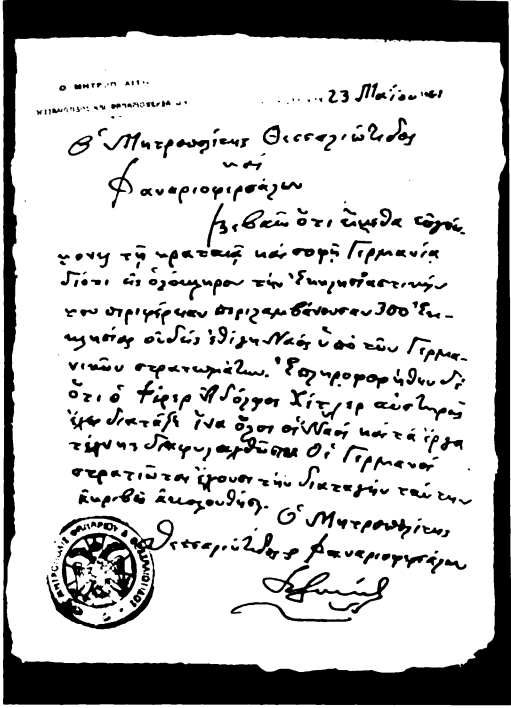 Ο ΜΗΤΡΟΠΟΛΙΤΗΣ
23 Μαΐου
Ὁ Μητροπολίτης Θεσσαλιώτιδος
καί
Φαναριοφερσάλων
βεβαιῶ ὅτι εἴμεθα
τῇ κραταιᾷ καί σοφῇ Γερμανίᾳ
διότι εἰς ὁλόκληρον τὴν Ἐκκλησιαστικήν
μου περιφέρειαν περιλαμβάνουσαν 300 Ἐκ-
κλησίας οὐδείς ἐθίγη Ναός ὑπό τῶν Γερμα-
νικῶν στρατευμάτων. Ἐπληροφορήθην δέ
ὅτι ὁ Φύρερ Ἀδόλφος Χίτλερ αὐστηρῶς
ἔχει διατάξει ἵνα ὅλοι οἱ Ναοί καί τά ἔργα
τέχνης διαφυλαχθῶσιν Οἱ Γερμανοί
στρατιῶται ἔχουσι τήν διαταγήν ταύτην
ἀκριβῶς ἀκολουθήσῃ.
Ὁ Μητροπολίτης
Θεσσαλιώτιδος & Φαναριοφερσάλων
ΜΗΤΡΟΠΟΛΙΣ ΦΑΝΑΡΙΟΥ & ΘΕΣΣΑΛΙΩΤΙΔΟΣ